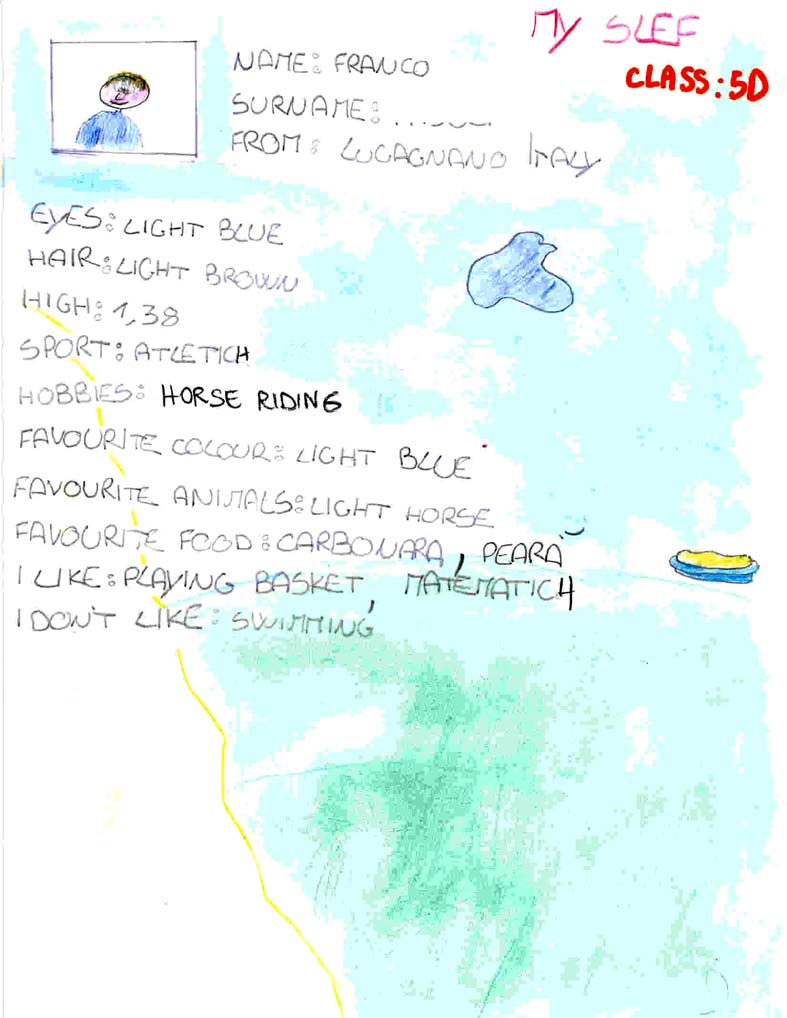 MY SLEF
CLASS: 5D
NAME: FRANCO
SURNAME:
FROM: LUGAGNANO ITALY
EYES: LIGHT BLUE
HAIR: LIGHT BROWN
HIGH: 1,38
SPORT: ATLETICH
HOBBIES: HORSE RIDING
FAVOURITE COLOUR: LIGHT BLUE
FAVOURITE ANIMALS: LIGHT HORSE
FAVOURITE FOOD: CARBONARA, PEARÀ
I LIKE: PLAYING BASKET, MATEMATICH
I DON'T LIKE: SWIMMING